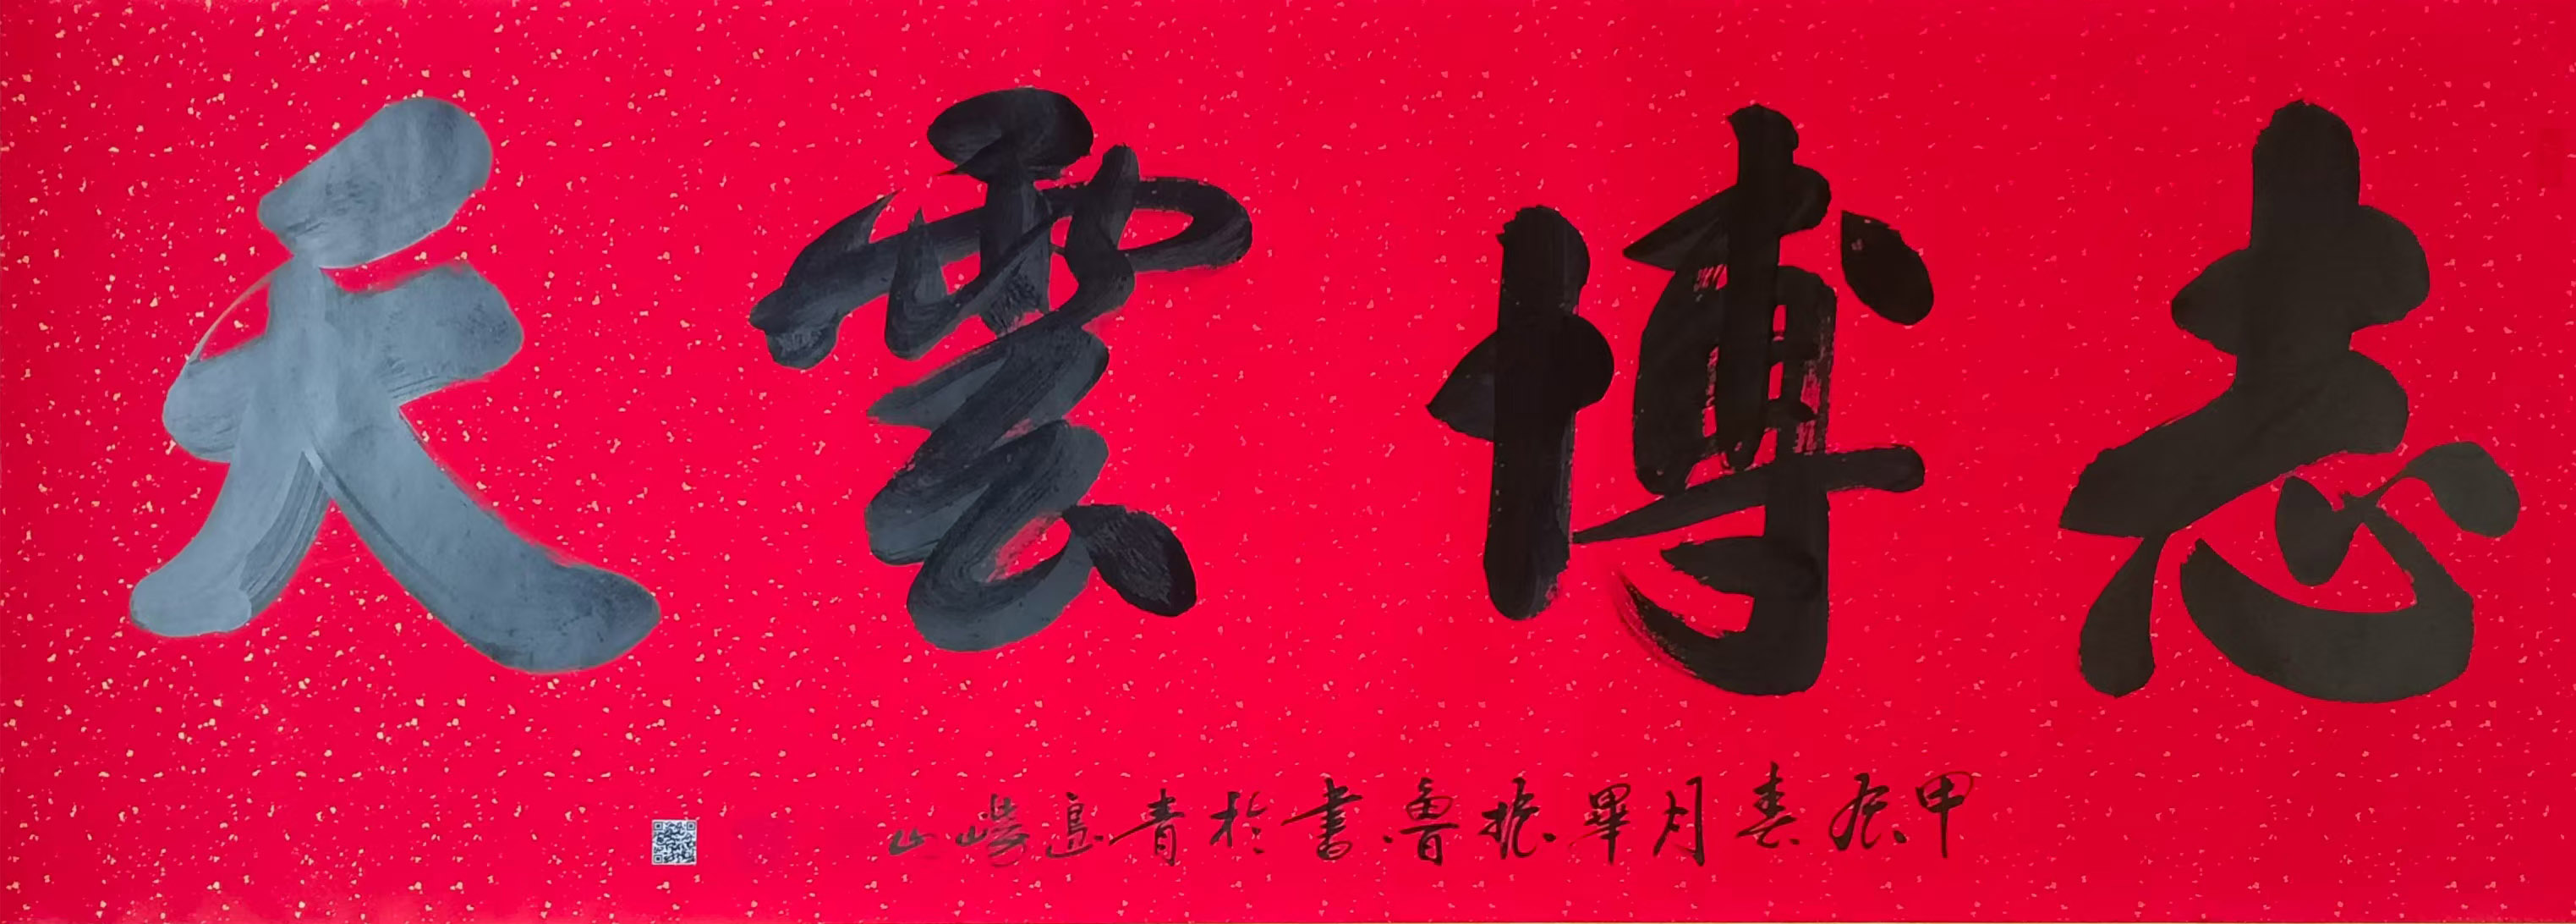 志博雲天
甲辰春月畢振魯書於青島嶗山